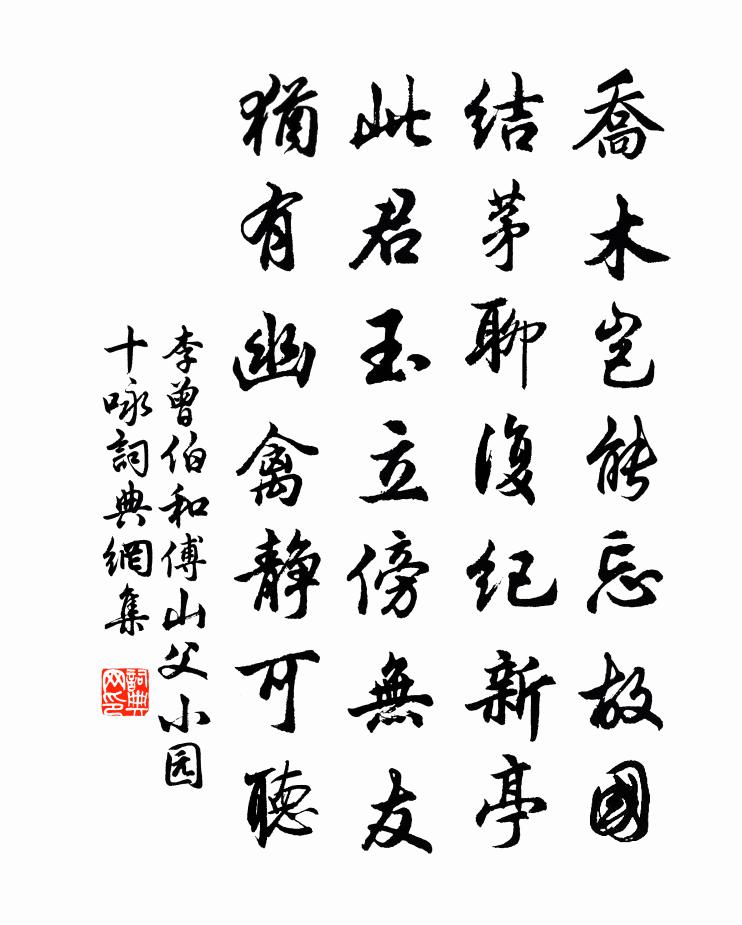 喬木豈能忘故國
結茅聊復紀新亭
此君玉立傍無友
猶有幽禽静可聽
李曾伯和傅山父小园
十咏詞典網集
詞典
网印